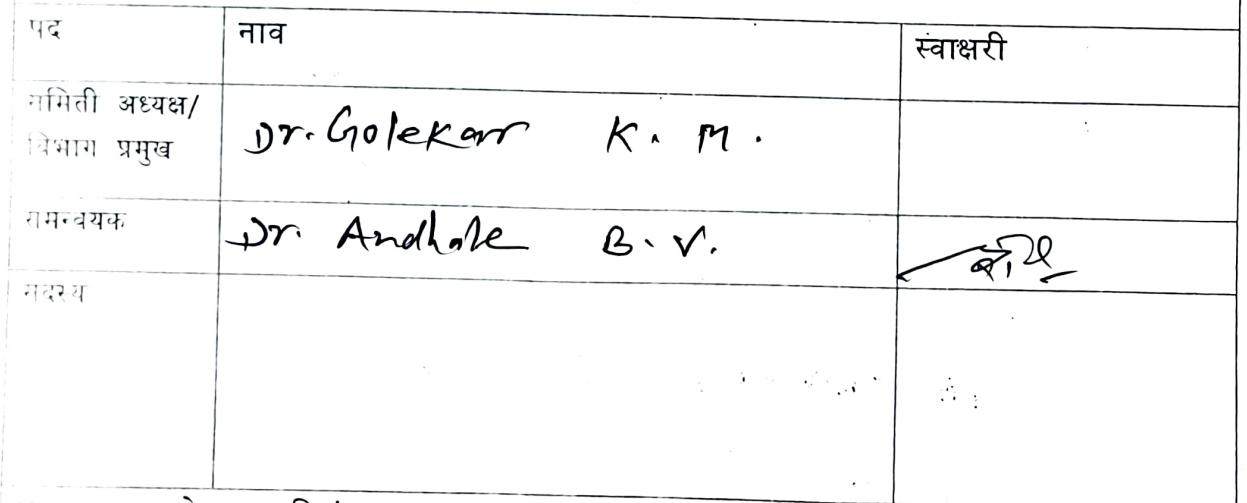 पद नाव स्वाक्षरी
समिती अध्यक्ष/
विभाग प्रमुख Dr. Golekar K. M.
समन्वयक Dr. Andhale B. V.
सदस्य